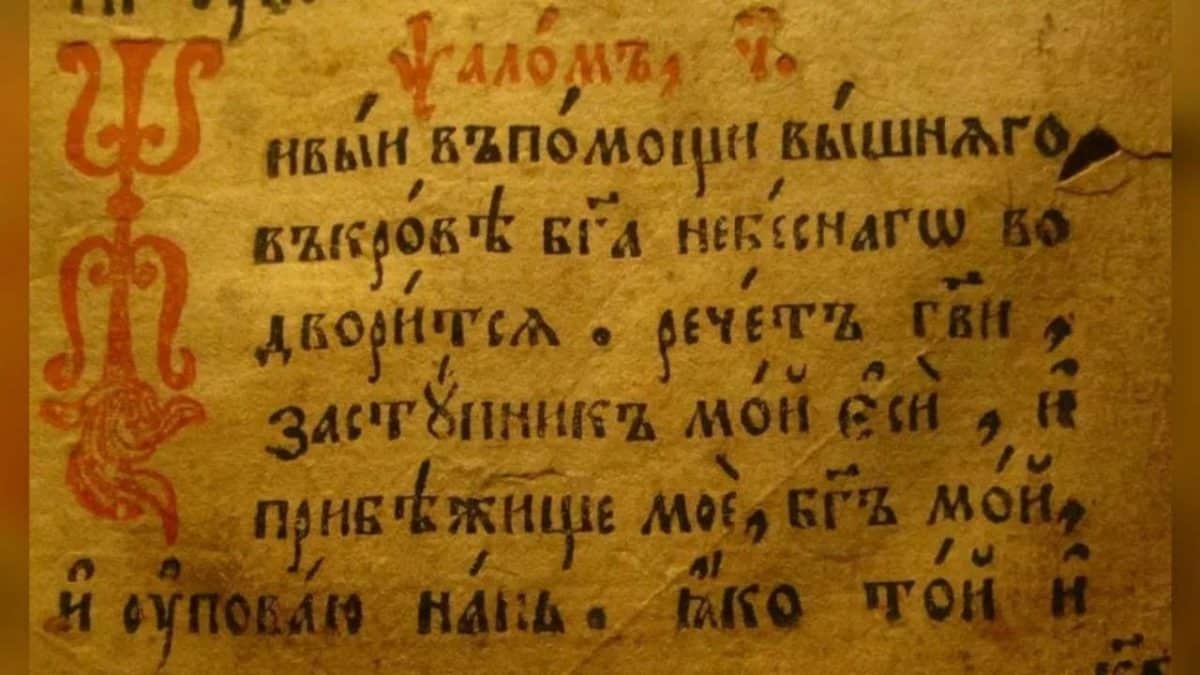 Ѱало́мъ, ч҃.
Живы́и въпо́мощи вы́шнѧго
въкро́вѣ бг҃а небе́снагѡ во
двори́тсѧ. рече́тъ гв҃и,
застꙋ́пникъ мо́й є҆сѝ, и҆
прибѣ́жище моѐ, бг҃ъ мо́й,
и҆ оу҆пова́ю на́нь. ꙗ҆́ко то́й и҆